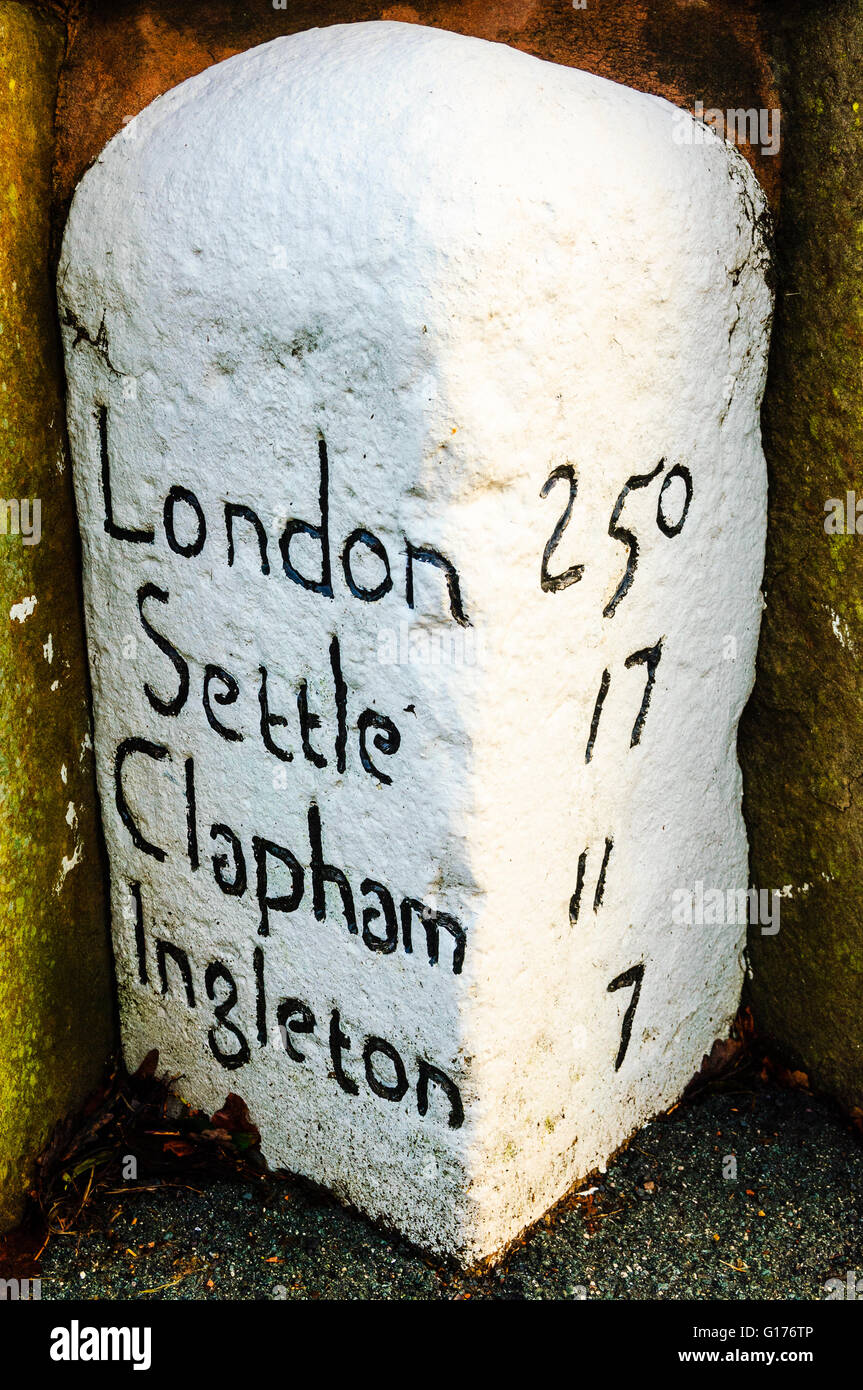 London 250
Settle 17
Clapham 11
Ingleton 7
alamy
Image ID: G176TP
www.alamy.com